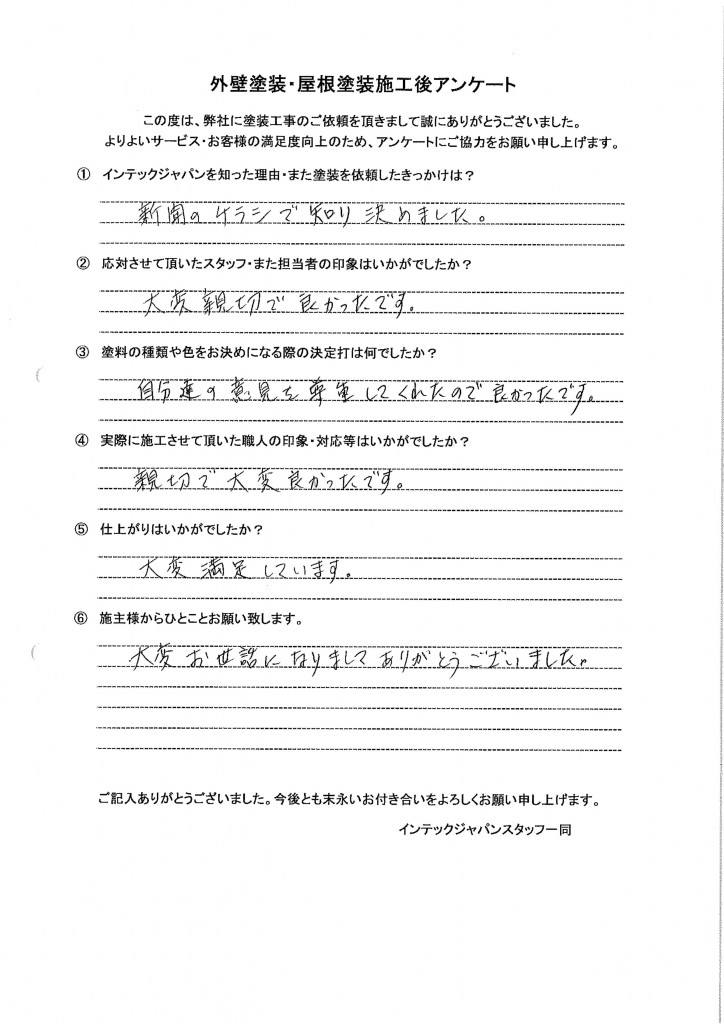 外壁塗装・屋根塗装施工後アンケート
この度は、弊社に塗装工事のご依頼を頂きまして誠にありがとうございました。
よりよいサービス・お客様の満足度向上のため、アンケートにご協力をお願い申し上げます。
① インテックジャパンを知った理由・また塗装を依頼したきっかけは？
新聞のチラシで知り決めました。
② 応対させて頂いたスタッフ・また担当者の印象はいかがでしたか？
大変親切で良かったです。
③ 塗料の種類や色をお決めになる際の決定打は何でしたか？
自分達の意見を尊重してくれたので良かったです。
④ 実際に施工させて頂いた職人の印象・対応等はいかがでしたか？
親切で大変良かったです。
⑤ 仕上がりはいかがでしたか？
大変満足しています。
⑥ 施主様からひとことお願い致します。
大変お世話になりましてありがとうございました。
ご記入ありがとうございました。今後とも末永いお付き合いをよろしくお願い申し上げます。
インテックジャパンスタッフ一同